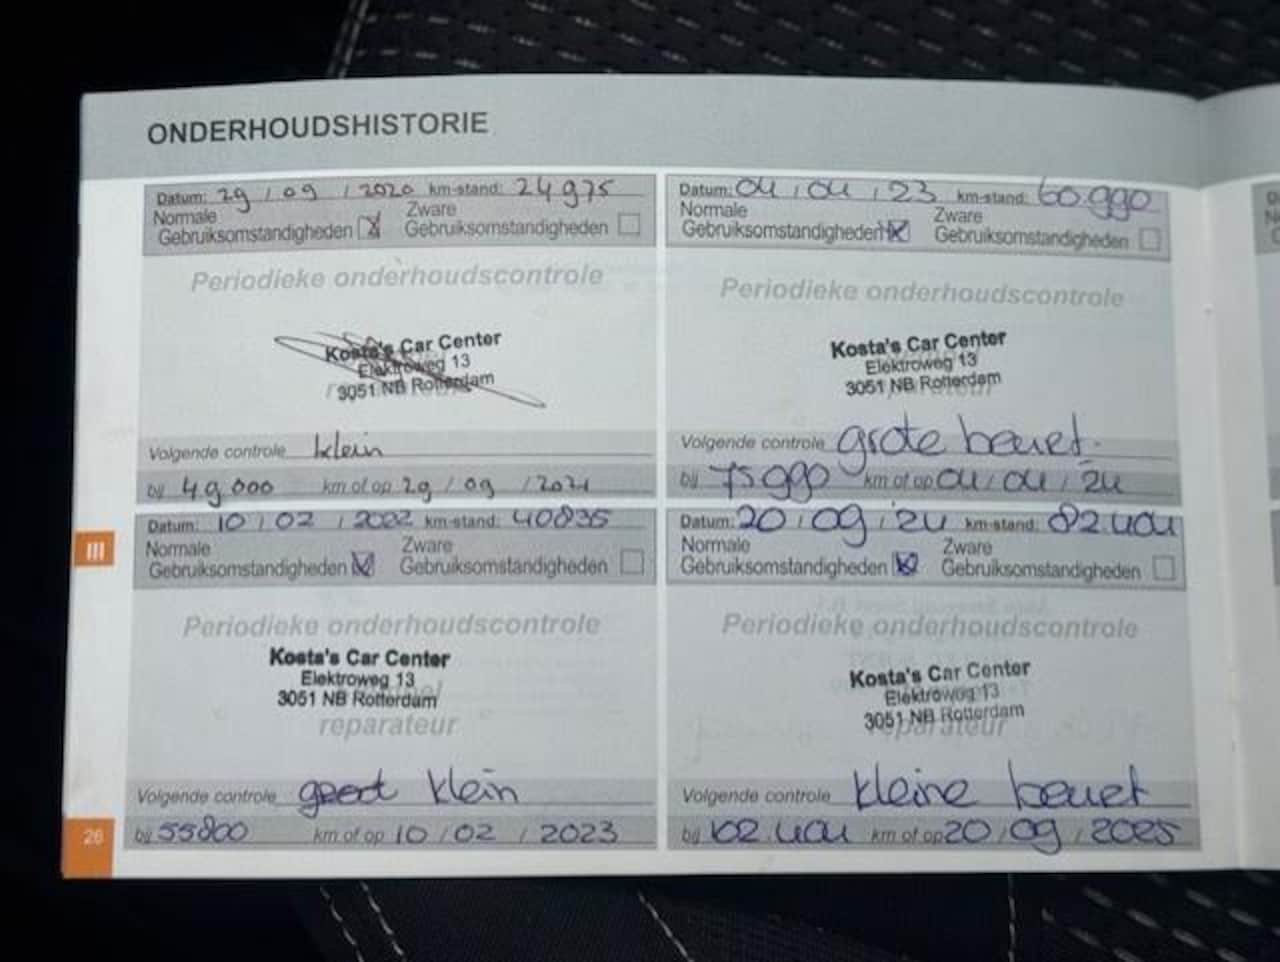 ONDERHOUDSHISTORIE
Datum: 29 / 09 / 2020 km-stand: 24975
Normale Gebruiksomstandigheden
Zware Gebruiksomstandigheden
Periodieke onderhoudscontrole
Kosta's Car Center
Elektroweg 13
3051 NB Rotterdam
Volgende controle klein
bij 49000 km of op 29 / 09 / 2021
Datum: 10 / 02 / 2022 km-stand: 40835
Normale Gebruiksomstandigheden
Zware Gebruiksomstandigheden
Periodieke onderhoudscontrole
Kosta's Car Center
Elektroweg 13
3051 NB Rotterdam
reparateur
Volgende controle klein
bij 55800 km of op 10 / 02 / 2023
Datum: 04 / 04 / 23 km-stand: 60.990
Normale Gebruiksomstandigheden
Zware Gebruiksomstandigheden
Periodieke onderhoudscontrole
Kosta's Car Center
Elektroweg 13
3051 NB Rotterdam
Volgende controle grote beurt.
bij 75990 km of op 04 / 04 / 24
Datum: 20 / 09 / 24 km-stand: 82.404
Normale Gebruiksomstandigheden
Zware Gebruiksomstandigheden
Periodieke onderhoudscontrole
Kosta's Car Center
Elektroweg 13
3051 NB Rotterdam
reparateur
Volgende controle kleine beurt
bij 102.404 km of op 20 / 09 / 2025
III
26